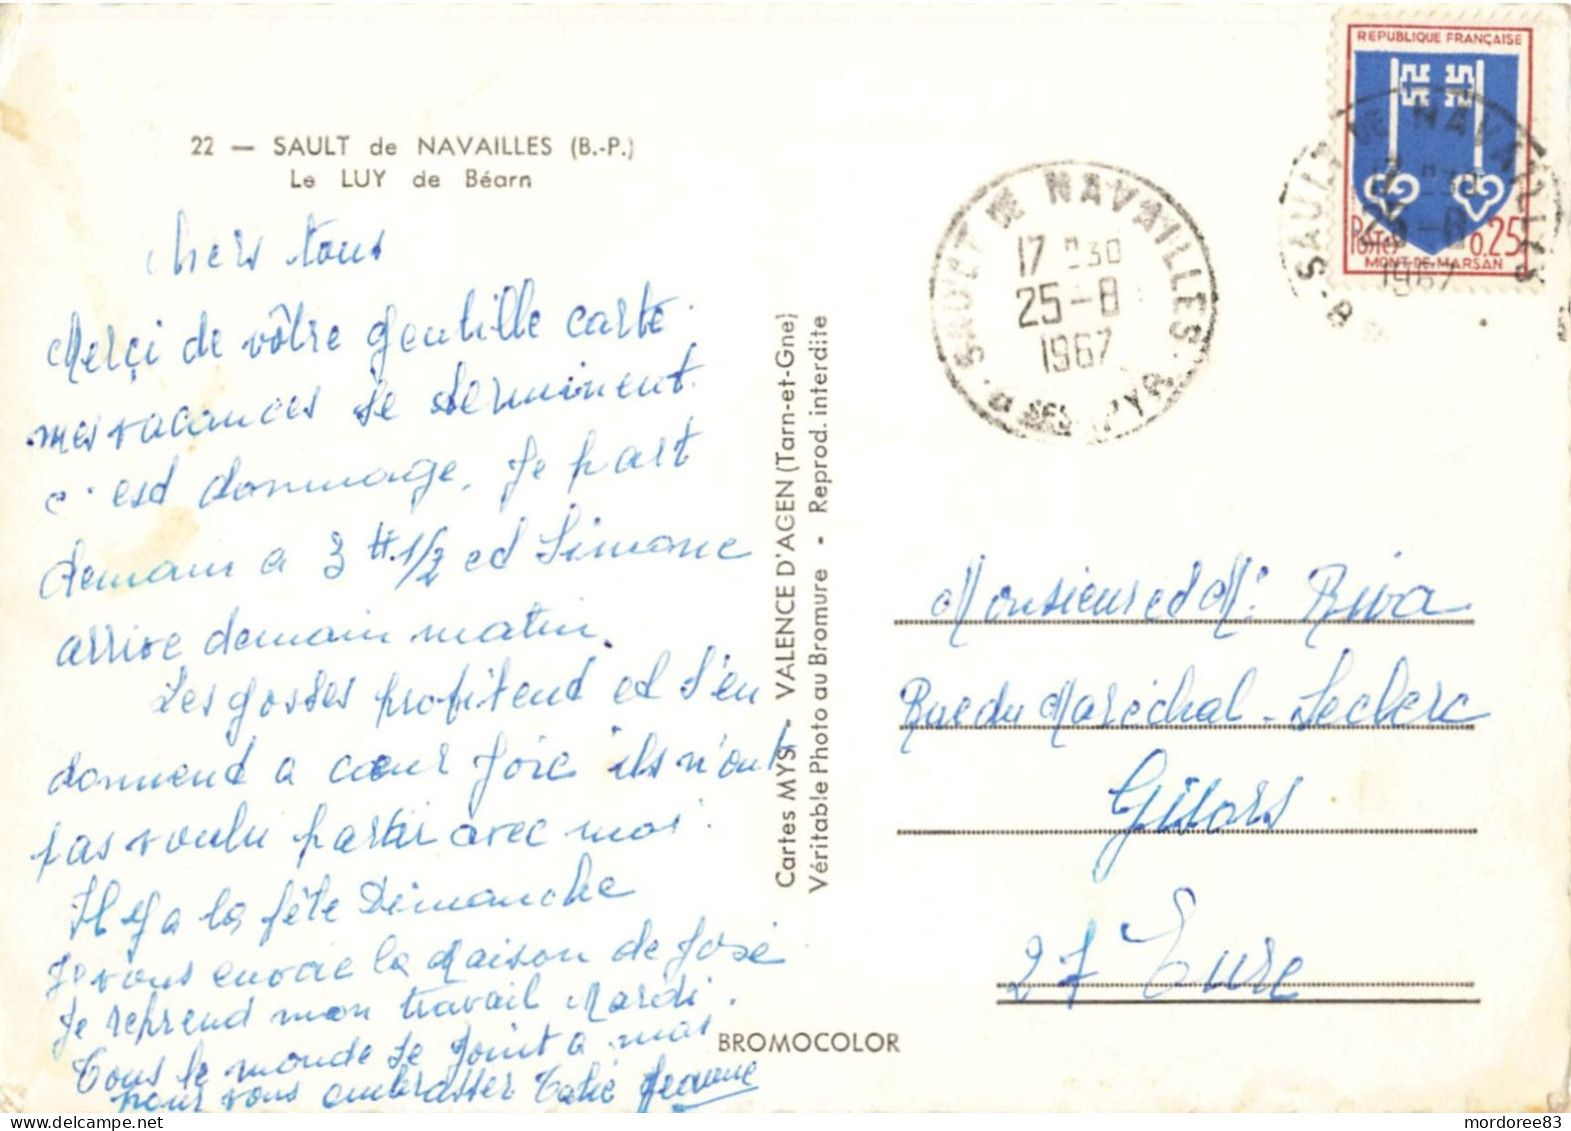 22 — SAULT de NAVAILLES (B.-P.)
Le LUY de Béarn
Chers tous
Merçi de vôtre gentille carte.
mes vacances se terminent
c'est dommage. Je part
demain a 3 H.1/2 et Simone
arrive demain matin.
Les gosses profitent et s'en
donnent a cœur joie ils n'ont
pas voulu partir avec moi.
Il y a la fête Dimanche
Je vous envoie la maison de José
Je reprend mon travail Mardi.
Tous le monde se joint a moi
pour vous embrasser Tatie Jeanne
Cartes MYS - VALENCE D'AGEN (Tarn-et-Gne)
Véritable Photo au Bromure - Reprod. interdite
BROMOCOLOR
SAULT DE NAVAILLES
17 H 30
25-8
1967
REPUBLIQUE FRANÇAISE
Postes 0,25
MONT-DE-MARSAN
SAULT DE NAVAILLES
25-8
1967
Monsieur et Me Riva
Rue du Maréchal-Leclerc
Gisors
27 Eure
mordoree83